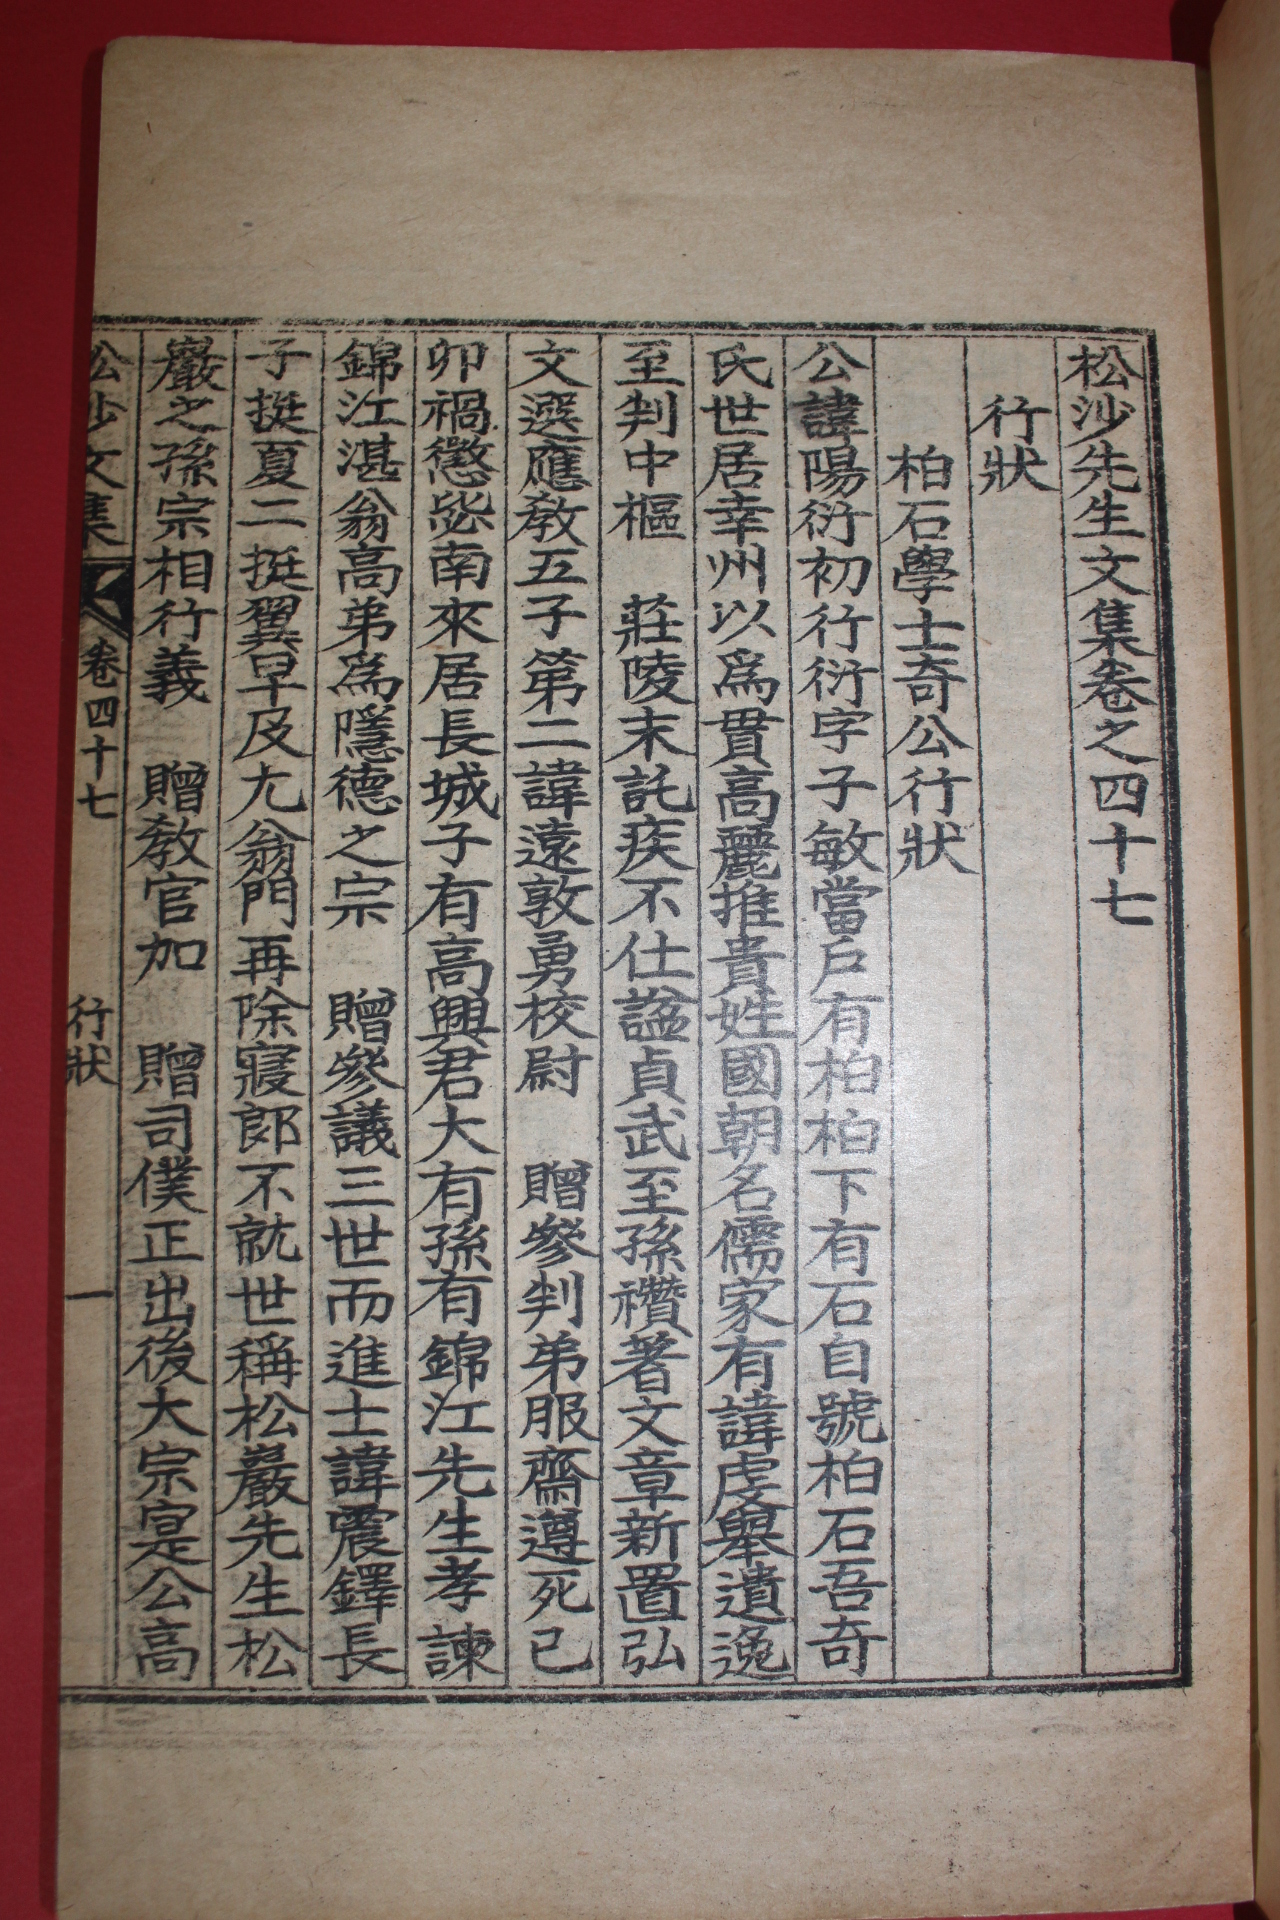 松沙先生文集卷之四十七
行狀
柏石學士奇公行狀
公諱陽衍初行衍字子敏當戶有柏柏下有石自號柏石吾奇
氏世居幸州以爲貫高麗推貴姓國朝名儒家有諱虔擧遺逸
至判中樞 莊陵末託疾不仕諡貞武至孫襸著文章新置弘
文選應敎五子第二諱遠敦勇校尉 贈參判弟服齋遵死己
卯禍懲毖南來居長城子有高興君大有孫有錦江先生孝諫
錦江湛翁高弟爲隱德之宗 贈參議三世而進士諱震鐸長
子挺夏二挺翼早及尤翁門再除寢郞不就世稱松巖先生松
巖之孫宗相行義 贈敎官加 贈司僕正出後大宗寔公高
松沙文集 卷四十七 行狀 一